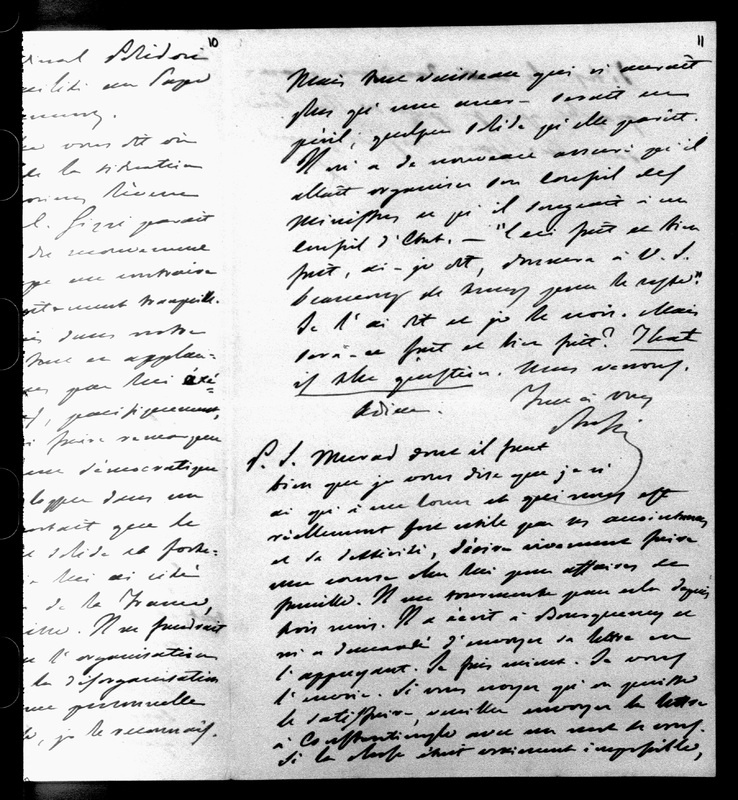 10
au Pape
vous dit où
de la situation
M. Gizzi paraît
de mouvement
tranquille.
dans notre
et applau-
par lui exé-
pacifiquement,
faire remarquer
démocratique
dans un
que le
solide et forte-
lui ai cité
de la France,
Il ne faudrait
l'organisation
la désorganisation
personnelle
je le reconnais.
11
Mais tout vaisseau qui n'aurait
plus qu'une ancre serait en
péril, quelque solide qu'elle parût.
Il m'a de nouveau assuré qu'il
allait organiser son Conseil des
Ministres et qu'il songeait à un
Conseil d'Etat. — "Ceci fait et bien
fait, ai-je dit, donnera à V. S.
beaucoup de temps pour le reste."
Je l'ai dit et je le crois. Mais
sera-ce fait et bien fait? That
is the question. Nous verrons.
Adieu. Tout à vous
Rossi
P. S. Murad dont il faut
bien que je vous dise que je n'
ai qu'à me louer et qui nous est
réellement fort utile par ses accointances
et sa dextérité, désire vivement faire
une course chez lui pour affaires de
famille. Il me tourmente pour cela depuis
trois mois. Il a écrit à Bourqueney et
m'a demandé d'envoyer sa lettre en
l'appuyant. Je fais mieux. Je vous
l'envoie. Si vous croyez qu'on puisse
le satisfaire, veuillez envoyer la lettre
à Constantinople avec un mot de vous.
Si la chose était vraiment impossible,